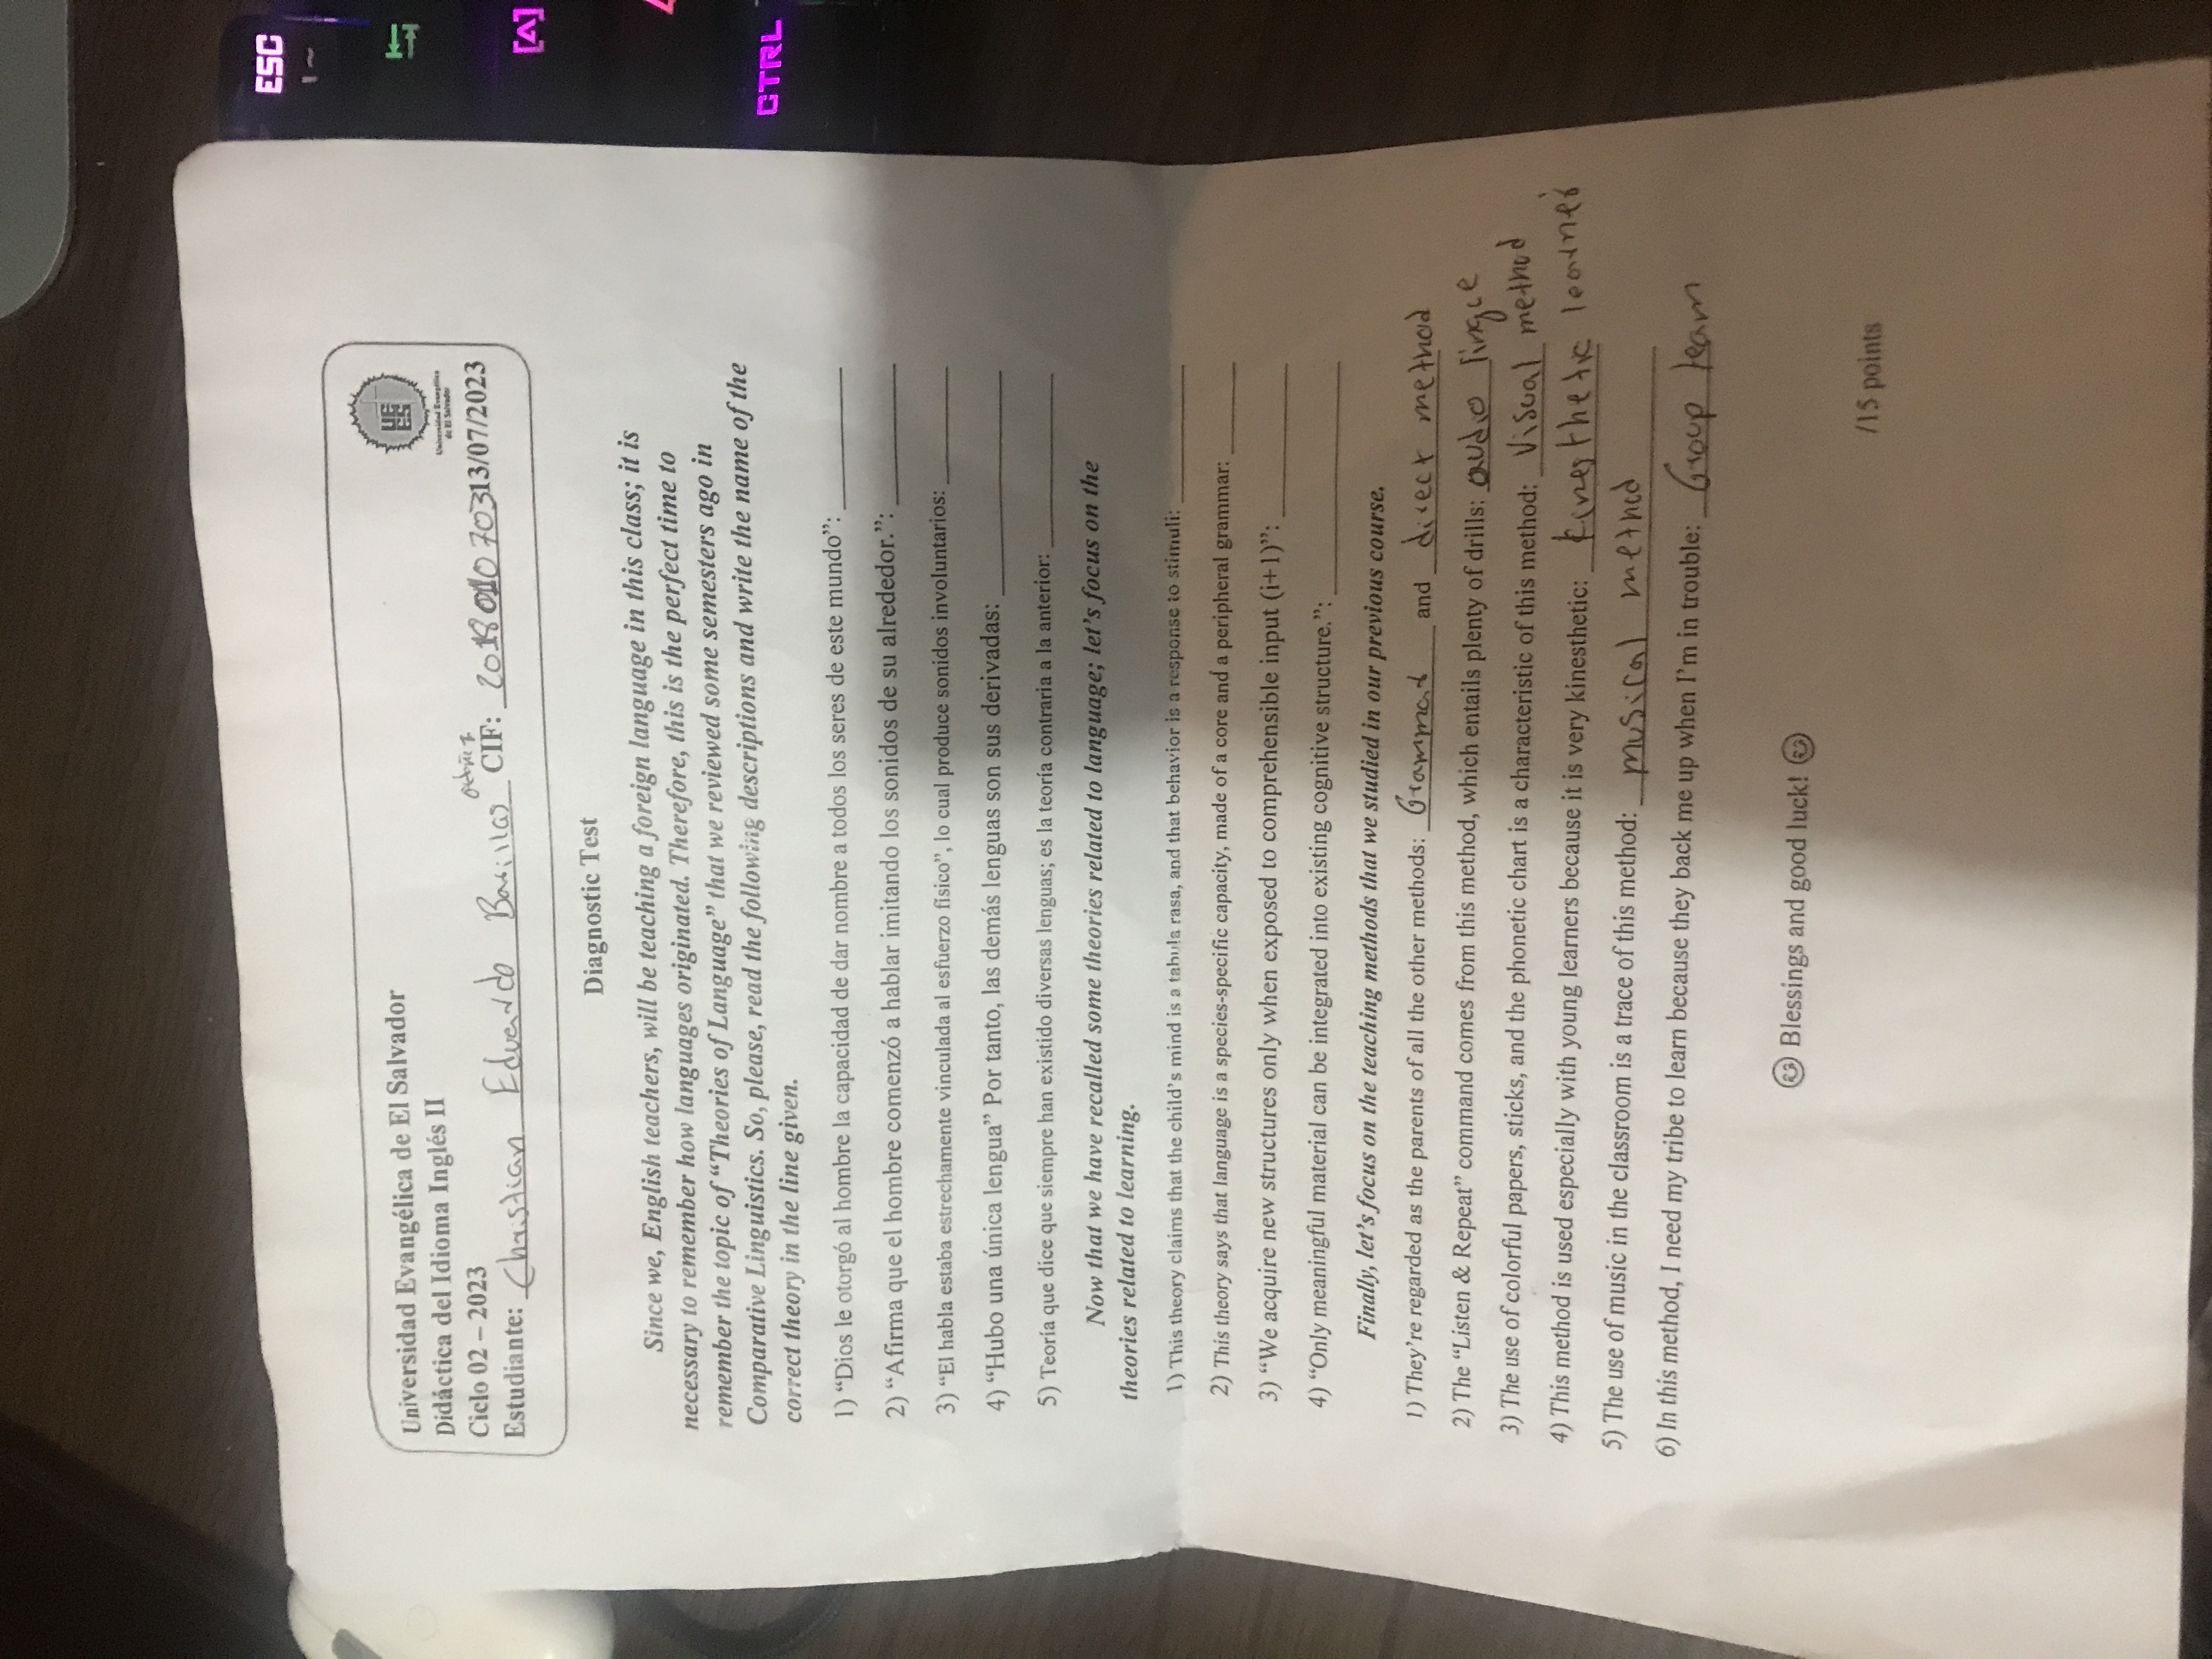 Universidad Evangélica de El Salvador
Didáctica del Idioma Inglés II
Ciclo 02 – 2023
Estudiante: Christian Eduardo Barillas CIF: 2018010703 13/07/2023
UE
ES
Universidad Evangélica
de El Salvador
Diagnostic Test
Since we, English teachers, will be teaching a foreign language in this class; it is
necessary to remember how languages originated. Therefore, this is the perfect time to
remember the topic of “Theories of Language” that we reviewed some semesters ago in
Comparative Linguistics. So, please, read the following descriptions and write the name of the
correct theory in the line given.
1) “Dios le otorgó al hombre la capacidad de dar nombre a todos los seres de este mundo”: ____________
2) “Afirma que el hombre comenzó a hablar imitando los sonidos de su alrededor.”: ____________
3) “El habla estaba estrechamente vinculada al esfuerzo físico”, lo cual produce sonidos involuntarios: ____________
4) “Hubo una única lengua” Por tanto, las demás lenguas son sus derivadas: ____________
5) Teoría que dice que siempre han existido diversas lenguas; es la teoría contraria a la anterior: ____________
Now that we have recalled some theories related to language; let’s focus on the
theories related to learning.
1) This theory claims that the child’s mind is a tabula rasa, and that behavior is a response to stimuli: ____________
2) This theory says that language is a species-specific capacity, made of a core and a peripheral grammar: ____________
3) “We acquire new structures only when exposed to comprehensible input (i+1)”: ____________
4) “Only meaningful material can be integrated into existing cognitive structure.”: ____________
Finally, let’s focus on the teaching methods that we studied in our previous course.
1) They’re regarded as the parents of all the other methods: Grammar and direct method
2) The “Listen & Repeat” command comes from this method, which entails plenty of drills: audio
3) The use of colorful papers, sticks, and the phonetic chart is a characteristic of this method: Visual method
4) This method is used especially with young learners because it is very kinesthetic: kinesthetic learner
5) The use of music in the classroom is a trace of this method: musical method
6) In this method, I need my tribe to learn because they back me up when I’m in trouble: Group team
Blessings and good luck!
/15 points
ESC
[A]
CTRL